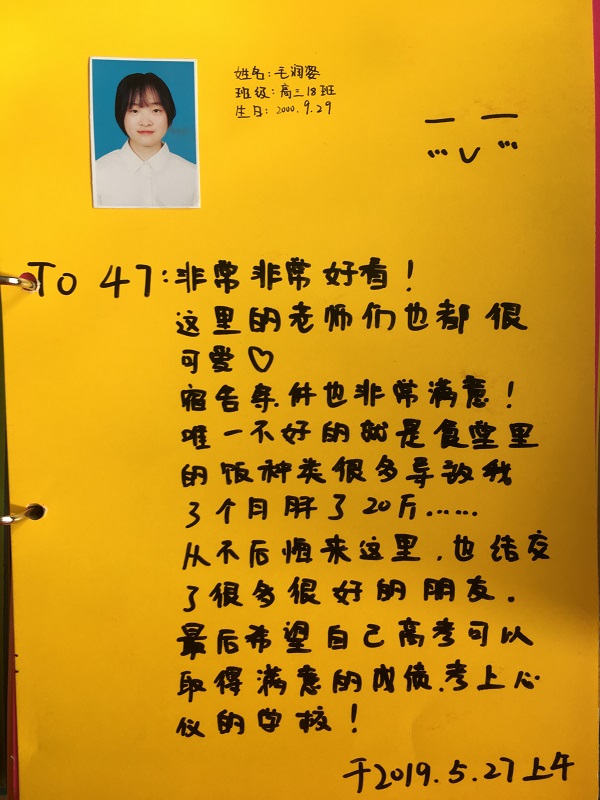 姓名：毛润姿
班级：高三18班
生日：2000.9.29
TO 47：非常非常好看！
这里的老师们也都很
可爱♡
宿舍条件也非常满意！
唯一不好的就是食堂里
的饭种类很多导致我
3个月胖了20斤……
从不后悔来这里，也结交
了很多很好的朋友.
最后希望自己高考可以
取得满意的成绩,考上心
仪的学校！
于2019.5.27上午